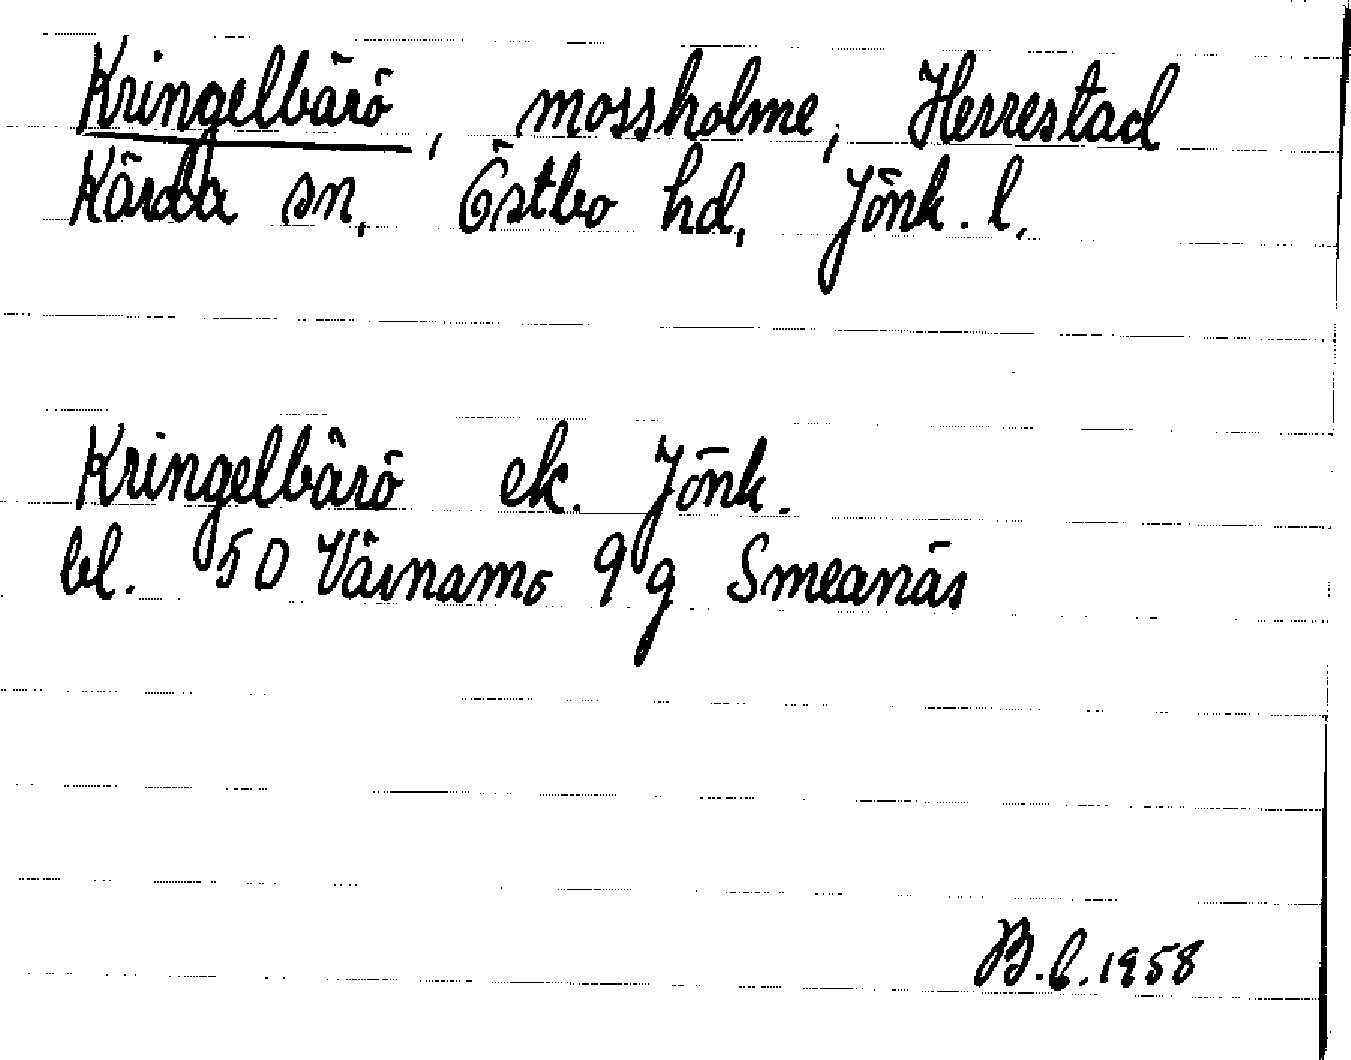 Kringelbärö, mossholme, Herrestad
Kärda sn, Östbo hd, Jönk. l.
Kringelbärö ek. Jönk.
bl. 50 Värnamo 9 g Smeanäs
B.b. 1958